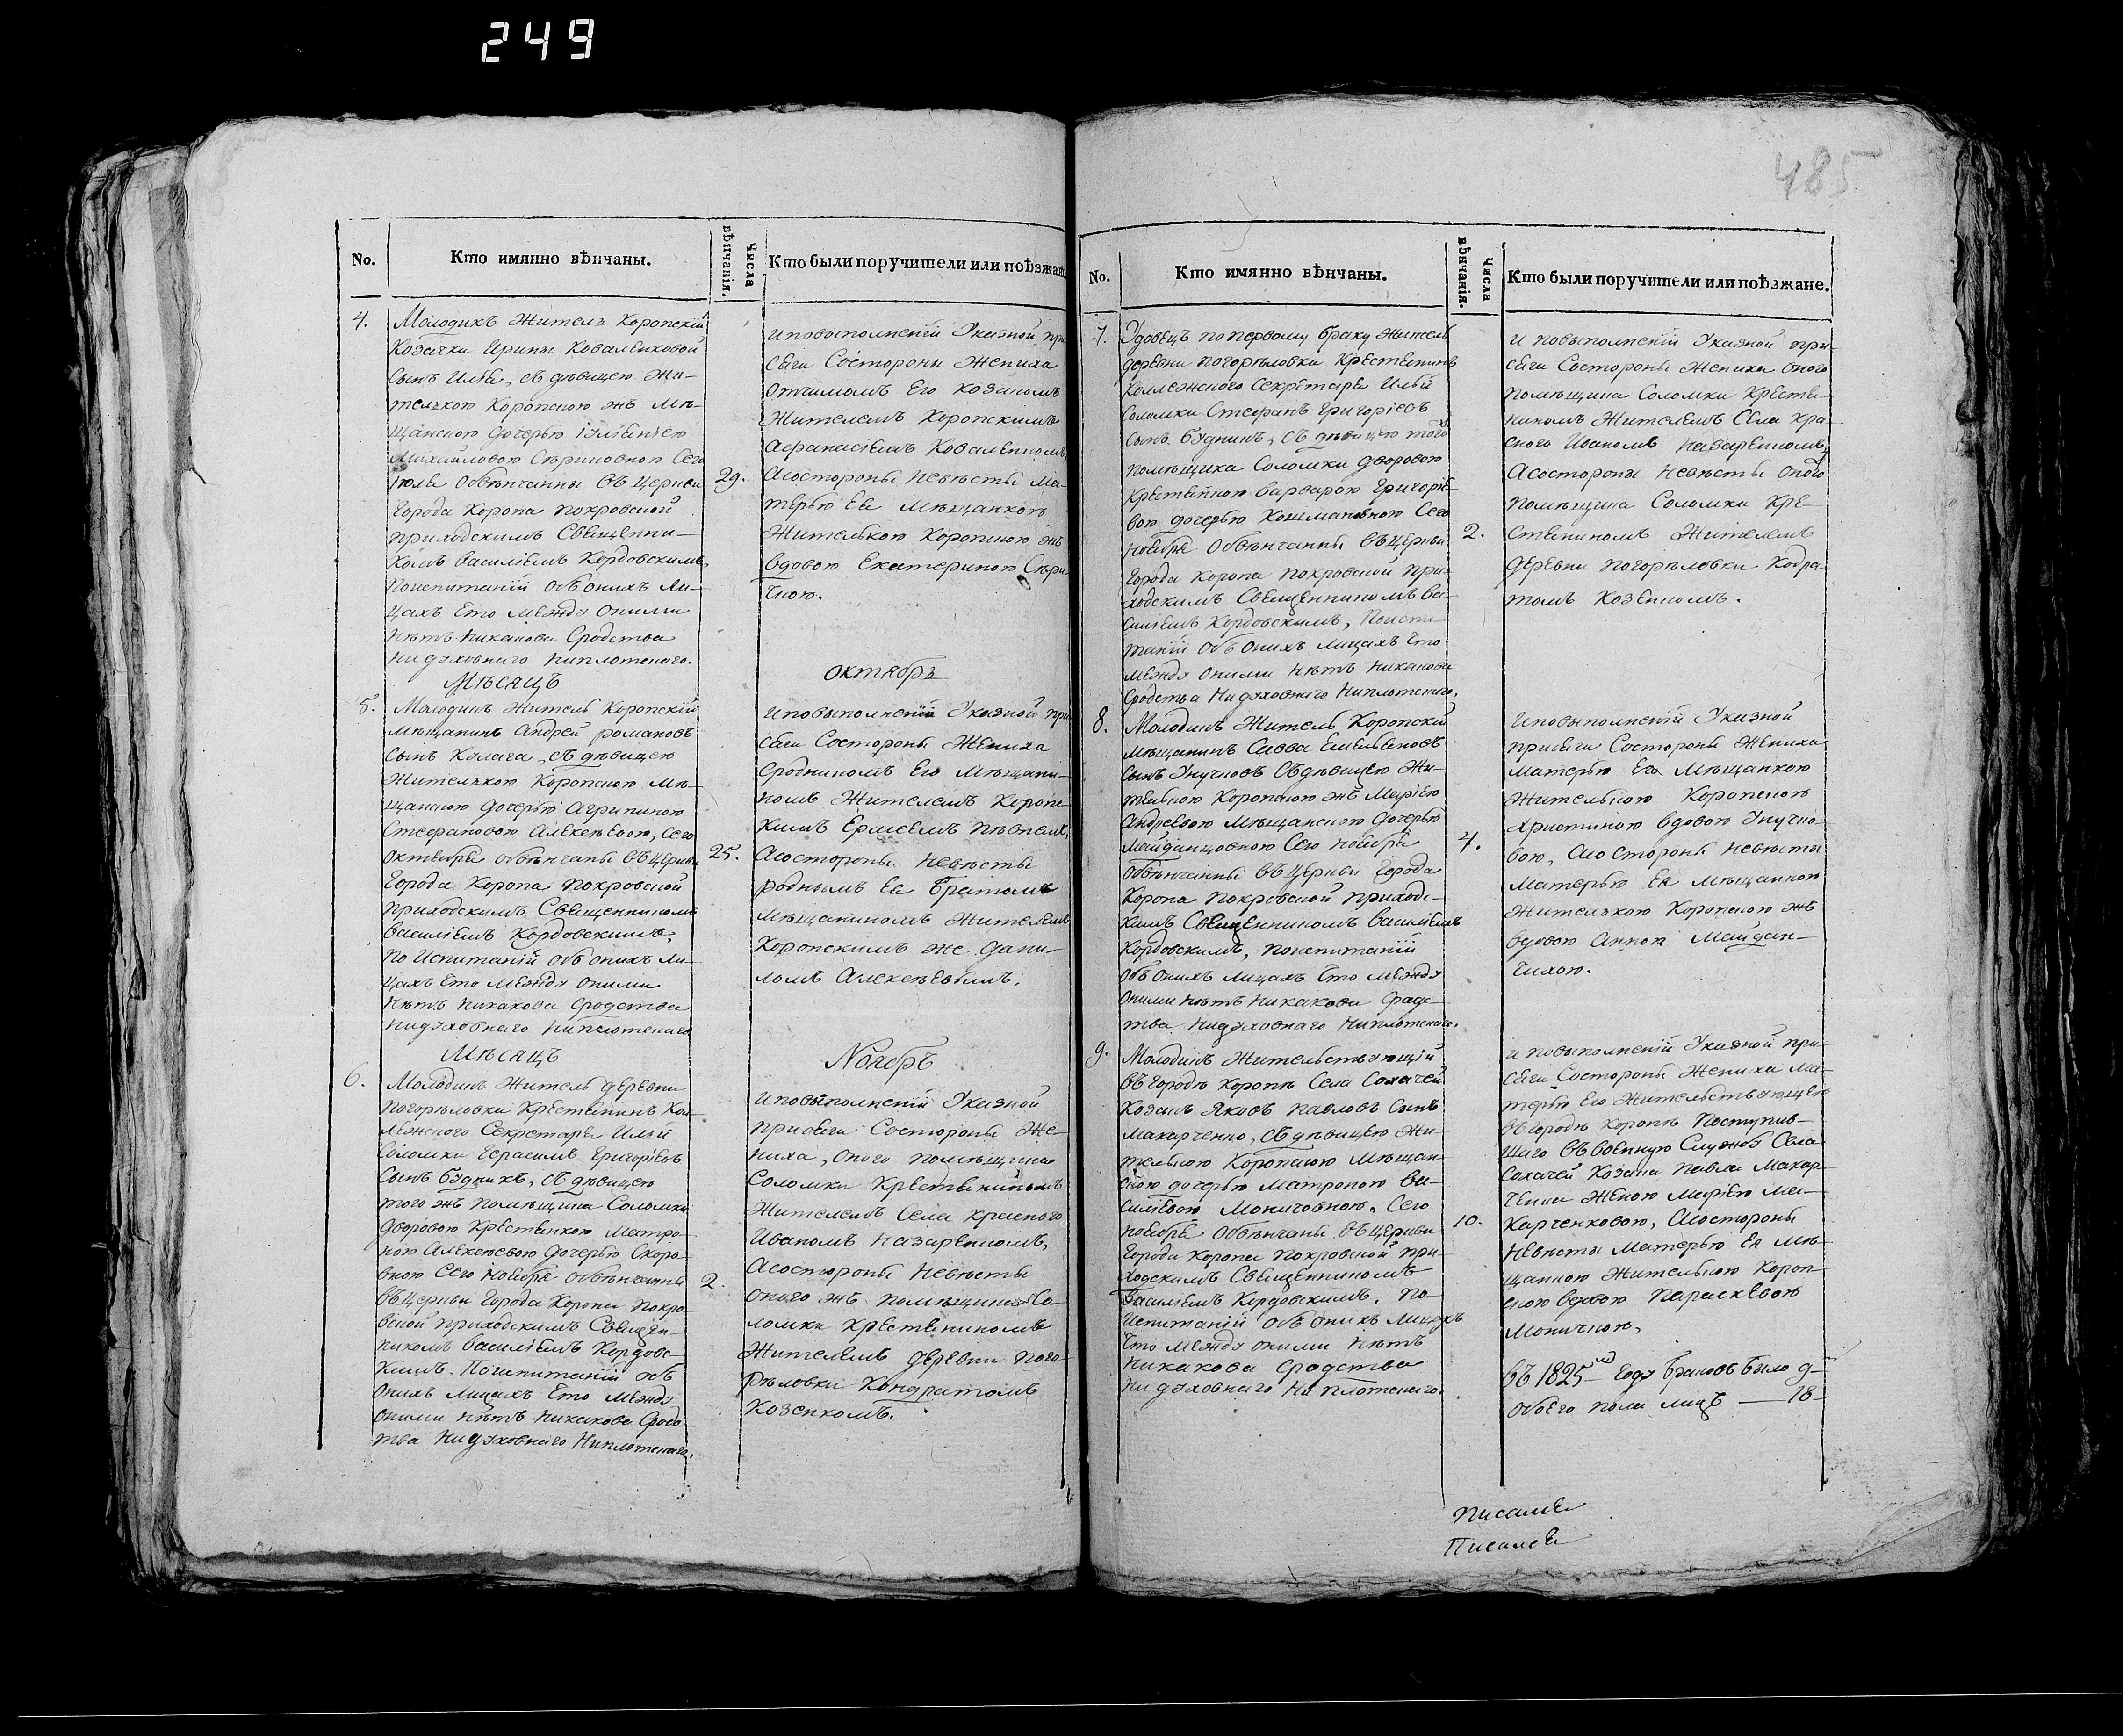 249
485
No.
Кто имянно вѣнчаны.
Числа вѣнчанія.
Кто были поручители или поѣзжане
4.
Молодикъ Житель Коропскій
Козачки Ирины Коваленковой
Сынъ Илья, съ дѣвицею Жи-
телькою Коропскою жъ Мѣ-
щанскою дочерью
Михайловою Сего
Іюля Обвѣнчанны въ Церкви
Города Коропа Покровской
приходскимъ Священни-
комъ Василіемъ Кордовскимъ,
Поиспитаній объ онихъ Ли-
цахъ Что между оними
Нѣтъ Никакова Сродства
Нидуховнаго Ниплотскаго.
29.
И повыполненій Указной при
сяги Состороны Жениха
Отчимомъ Его Козакомъ
Жителемъ Коропскимъ
Афанасіемъ Коваленкомъ,
Асостороны Невѣсты Ма-
терью Ее Мѣщанкою
Жителькою Коропскою жъ
Вдовою Екатериною
Мѣсяцъ
Октябрь
5.
Молодикъ Житель Коропскій
Мѣщанинъ Андрей Романовъ
Сынъ Кулага, съ дѣвицею
Жителькою Коропскою Мѣ-
щанскою дочерью Агрипиною
Стефановою Алексѣевою, Сего
Октября обвѣнчаны въ Церкви
Города Коропа Покровской
приходскимъ Священникомъ
Василіемъ Кордовскимъ,
По Испитаній объ онихъ Ли-
цахъ Что между оними
Нѣтъ Никакова Сродства
Нидуховнаго Ниплотскаго
25.
И повыполненій Указной при
сяги Состороны Жениха
Сродникомъ Его Мѣщани-
номъ Жителемъ Коропс-
кимъ
Асостороны Невѣсты
роднымъ Ее Братомъ
Мѣщаниномъ Жителемъ
Коропскимъ же Дани-
ломъ Алексѣевимъ.
Мѣсяцъ
Ноябрь
6.
Молодикъ Житель деревни
Погорѣловки Крестьянинъ Кол-
лежского Секретаря Ильи
Соломки Герасимъ Григоріевъ
Сынъ Будникъ, съ дѣвицею
того жъ помѣщика Соломки
дворовою Крестянкою Матро-
ною Алексѣевою дочерью Скоро-
вною Сего Ноября обвѣнчанны
въ Церкви Города Коропа Покро-
вской приходскимъ Священ-
никомъ Василіемъ Кордовс-
кимъ Поиспитаній объ
онихъ Лицахъ Что между
оними Нѣтъ Никакова Сродс-
тва Нидуховнаго Ниплотскаго.
2.
И повыполненій Указной
присяги Состороны Же-
ниха, оного помѣщика
Соломки Крестяниномъ
Жителемъ Села Красного
Иваномъ Назаренкомъ,
Асостороны Невѣсты
оного жъ помѣщика Со-
ломки Крестениномъ
Жителемъ деревни Пого-
рѣловки Кондратомъ
Козенкомъ.
No.
Кто имянно вѣнчаны.
Числа вѣнчанія.
Кто были поручители или поѣзжане.
7.
Удовецъ по первому браку Житель
деревни Погорѣловки Крестянинъ
Коллежского Секретаря Ильи
Соломки Стефанъ Григоріевъ
Сынъ Будникъ, съ дѣвицею того
помѣщика Соломки дворовою
Крестянкою Варварою Григоріе-
вою дочерью Сего
Ноября Обвѣнчанны въ Церкви
Города Коропа Покровской при-
ходскимъ Священникомъ Ва-
силіемъ Кордовскимъ, Поиспи-
таній объ онихъ Лицахъ Что
между оними Нѣтъ Никакова
Сродства Нидуховнаго Ниплотскаго.
2.
И повыполненій Указной при-
сяги Состороны Жениха оного
помѣщика Соломки Крестя-
ниномъ Жителемъ Села Кра-
сного Иваномъ Назаренкомъ,
Асостороны Невѣсты оного
помѣщика Соломки Кре-
стяниномъ Жителемъ
деревни Погорѣловки Кодра-
томъ Козенкомъ.
8.
Молодикъ Житель Коропскій
Мѣщанинъ Савва Емельяновъ
Сынъ Унучковъ Съ дѣвицею Жи-
телькою Коропскою жъ Маріею
Андреевою Мѣщанскою дочерью
Майданцовною Сего Ноября
Обвѣнчанны въ Церкви Города
Коропа Покровской приходс-
кимъ Священникомъ Василіемъ
Кордовскимъ, Поиспитаній
объ онихъ Лицахъ Что между
оними Нѣтъ Никакова Сродс-
тва Нидуховнаго Ниплотскаго.
4.
И повыполненій Указной
присяги Состороны Жениха
Матерью Его Мѣщанкою
Жителькою Коропскою
Христиною Вдовою Унучко-
вою, Асостороны Невѣсты
Матерью Ея Мѣщанкою
Жителькою Коропскою жъ
Вдовою Анною Майдан-
чихою.
9.
Молодикъ Жительствующій
въ Городѣ Коропѣ Села Сохачей
Козакъ Яковъ Павловъ Сынъ
Макарченко, съ дѣвицею Жи-
телькою Коропскою Мѣщан-
скою дочерью Матроною Ва-
силіевою Моничовною, Сего
Ноября Обвѣнчаны въ Церкви
Города Коропа Покровской при-
ходскимъ Священникомъ
Василіемъ Кордовскимъ, По-
испитаній объ онихъ Лицахъ
Что между оними Нѣтъ
Никакова Сродства
Нидуховнаго Ниплотскаго.
10.
И повыполненій Указной при-
сяги Состороны Жениха Ма-
терью Его Жительствующею
въ Городѣ Коропѣ Поступив-
шаго въ военную Службу Села
Сохачей Козака Павла Макар-
ченка Женою Маріею Ма-
карченковою, Асостороны
Невѣсты Матерью Ея Мѣ-
щанкою Жителькою Короп-
скою Вдовою Параскевою
Моничкою,
Въ 1825 Году браковъ было 9
обоего пола лицъ — 18